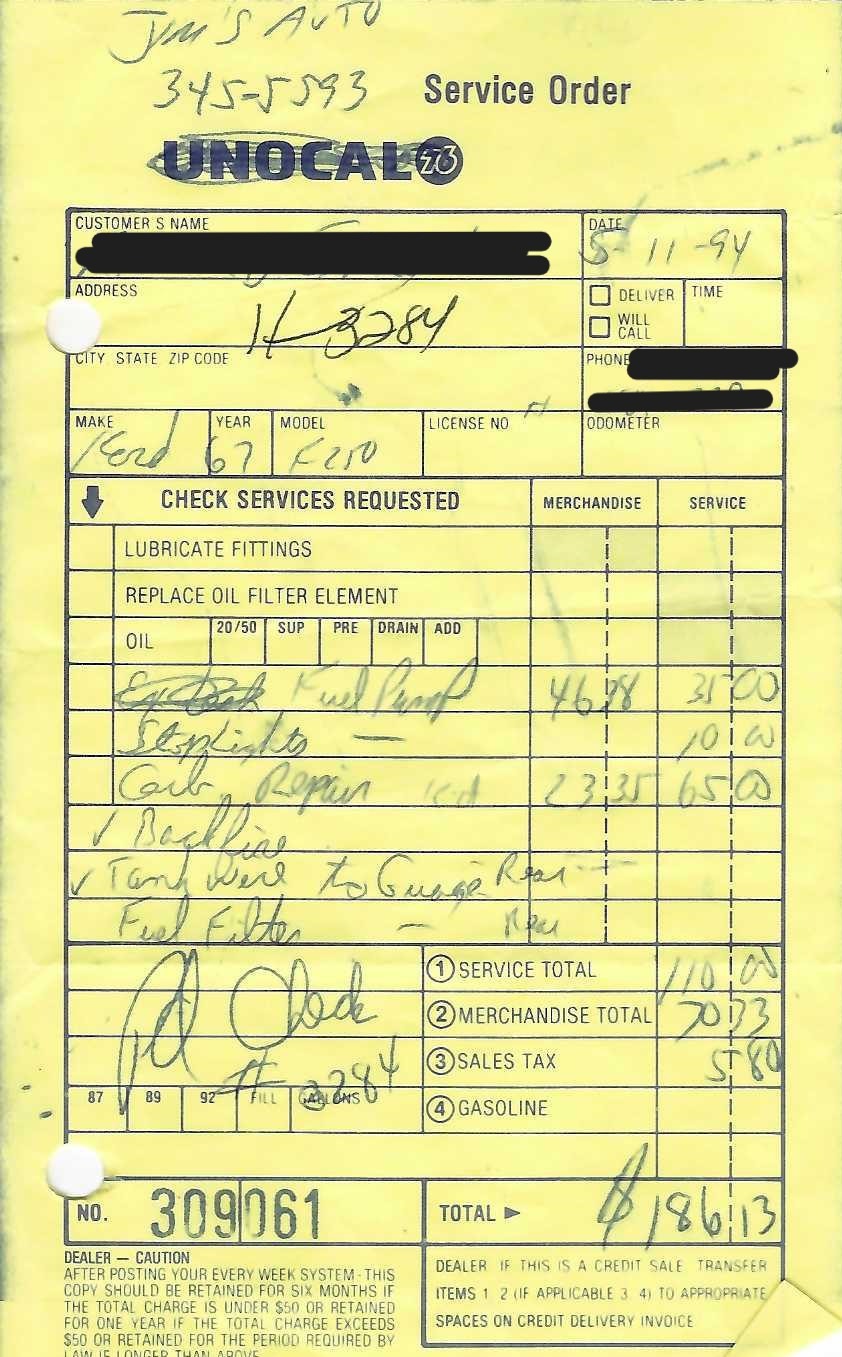 Jim's Auto
345-5593
Service Order
UNOCAL 76
CUSTOMER S NAME
DATE
5-11-94
ADDRESS
#3284
DELIVER
TIME
WILL CALL
CITY STATE ZIP CODE
PHONE
MAKE YEAR MODEL LICENSE NO ODOMETER
Ford 67 F250
CHECK SERVICES REQUESTED MERCHANDISE SERVICE
LUBRICATE FITTINGS
REPLACE OIL FILTER ELEMENT
OIL 20/50 SUP PRE DRAIN ADD
Fuel Pump 46 98 35 00
Stop Lights — 10 00
Carb Repair 23 35 65 00
✓ Backfire
✓ Tank Wire to Guage Rear
Fuel Filter — Rear
① SERVICE TOTAL 110 00
② MERCHANDISE TOTAL 70 33
③ SALES TAX 5 80
④ GASOLINE
Pd Check
# 3284
87 89 92 FILL GALLONS
NO. 309061
TOTAL ► $186 13
DEALER — CAUTION
AFTER POSTING YOUR EVERY WEEK SYSTEM - THIS
COPY SHOULD BE RETAINED FOR SIX MONTHS IF
THE TOTAL CHARGE IS UNDER $50 OR RETAINED
FOR ONE YEAR IF THE TOTAL CHARGE EXCEEDS
$50 OR RETAINED FOR THE PERIOD REQUIRED BY
LAW IF LONGER THAN ABOVE
DEALER IF THIS IS A CREDIT SALE TRANSFER
ITEMS 1 2 (IF APPLICABLE 3 4) TO APPROPRIATE
SPACES ON CREDIT DELIVERY INVOICE